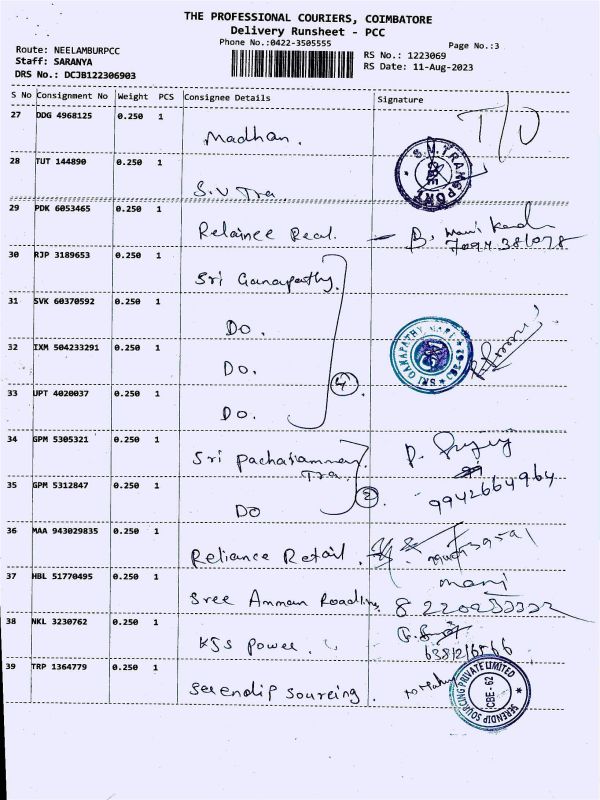 THE PROFESSIONAL COURIERS, COIMBATORE
Delivery Runsheet - PCC
Phone No.:0422-3505555
Page No.:3
Route: NEELAMBURPCC
Staff: SARANYA
DRS No.: DCJB122306903
RS No.: 1223069
RS Date: 11-Aug-2023
S No Consignment No Weight PCS Consignee Details Signature
27 DDG 4968125 0.250 1 Madhan. T/O
28 TUT 144890 0.250 1 S.V Tra. S.V. TRANSPORT CBE
29 PDK 6053465 0.250 1 Relaince Real. B.
30 RJP 3189653 0.250 1 Sri Ganapathy.
31 SVK 60370592 0.250 1 Do.
32 IXM 504233291 0.250 1 Do. SRI GANAPATHY
33 UPT 4020037 0.250 1 Do. 4
34 GPM 5305321 0.250 1 Sri pachaiamman Tra. P.
35 GPM 5312847 0.250 1 Do 2 9942664964
36 MAA 943029835 0.250 1 Reliance Retail.
37 HBL 51770495 0.250 1 Sree Amman Roadlines mani
38 NKL 3230762 0.250 1 KJS Power.
39 TRP 1364779 0.250 1 Serendip Sourcing. SERENDIP SOURCING PRIVATE LIMITED CBE-62